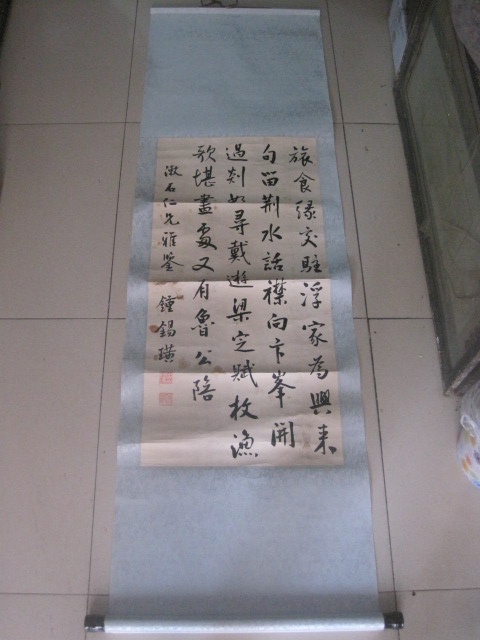 旅食緣交駐浮家為興来
句留荆水話襟向卞峯開
過剡如尋戴遊梁定賦枚漁
歌堪畫處又有魯公陪
漱石仁兄雅鉴 鍾錫璜